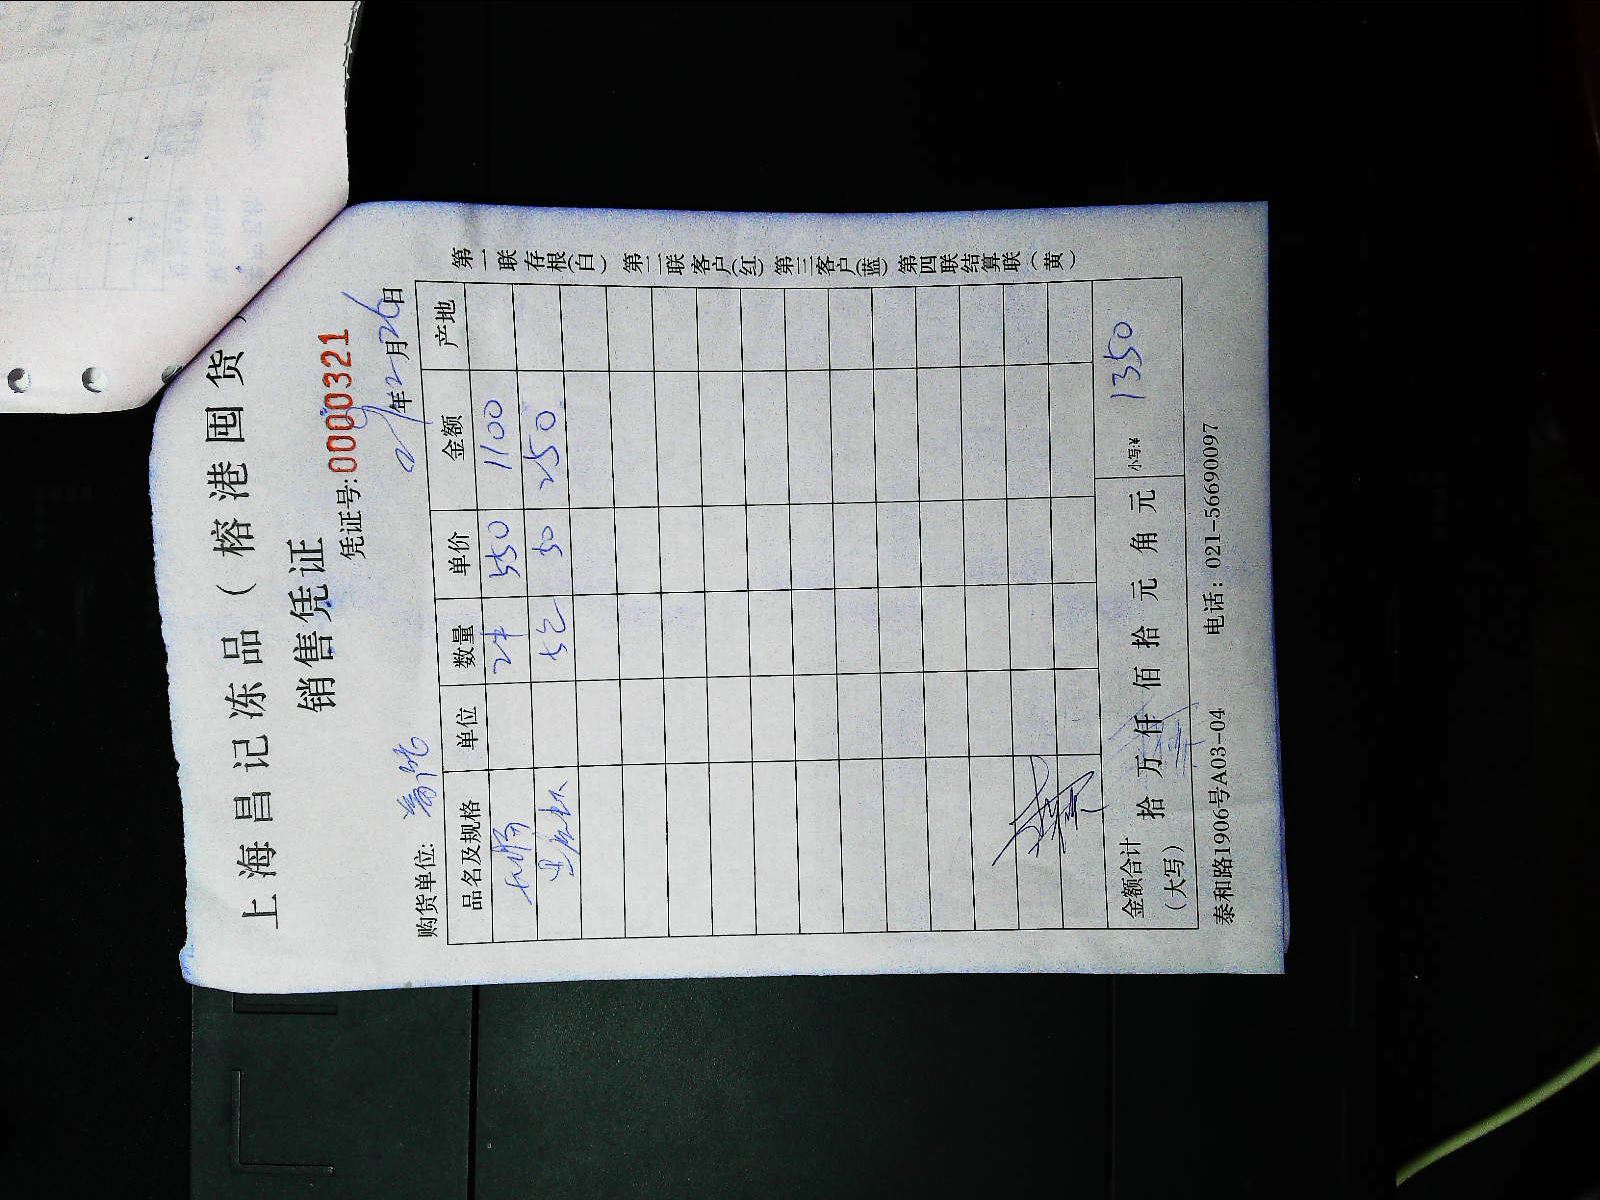 上海昌记冻品（榕港囤货
销售凭证
凭证号:0000321
21年2月26日
购货单位:
品名及规格 单位 数量 单价 金额 产地
2件 550 1100
5包 50 250
金额合计（大写） 拾 万 仟 佰 拾 元 角 元 小写:¥ 1350
泰和路1906号A03-04 电话：021-56690097
第一联存根(白) 第二联客户(红) 第三客户(蓝) 第四联结算联（黄）